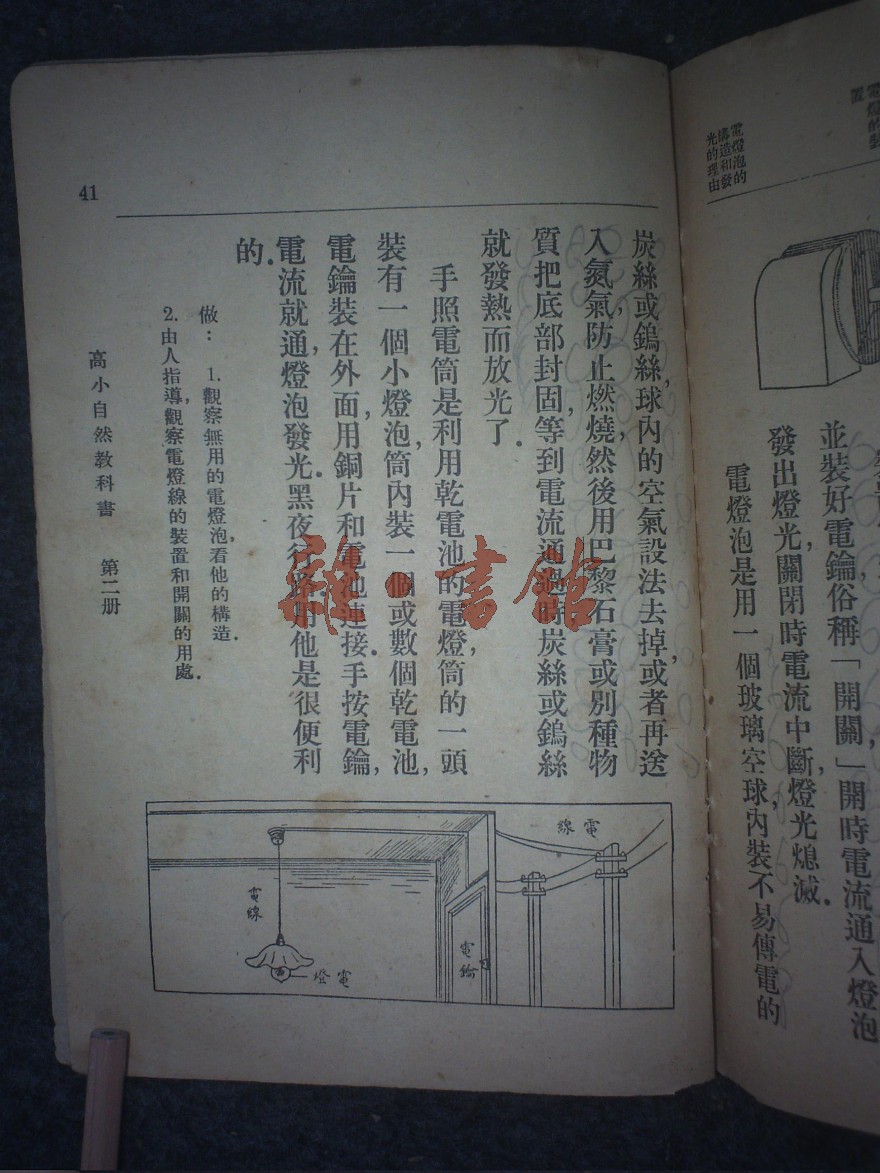 電燈的裝
置
並裝好電鑰，俗稱「開關」開時電流通入燈泡
發出燈光，關閉時電流中斷，燈光熄滅．
電燈泡的
構造和發
光的理由
電燈泡是用一個玻璃空球，內裝不易傳電的
炭絲或鎢絲，球內的空氣設法去掉，或者再送
入氮氣，防止燃燒，然後用巴黎石膏或別種物
質把底部封固，等到電流通過時，炭絲或鎢絲
就發熱而放光了．
手照電筒是利用乾電池的電燈，筒的一頭
裝有一個小燈泡，筒內裝一個或數個乾電池，
電鑰裝在外面，用銅片和電池連接．手按電鑰，
電流就通，燈泡發光．黑夜行路用他是很便利
的．
做：　1. 觀察無用的電燈泡，看他的構造．
2. 由人指導，觀察電燈線的裝置和開關的用處．
高小自然教科書　第二册
41
電線
電線
電燈
電鑰
雜·書館